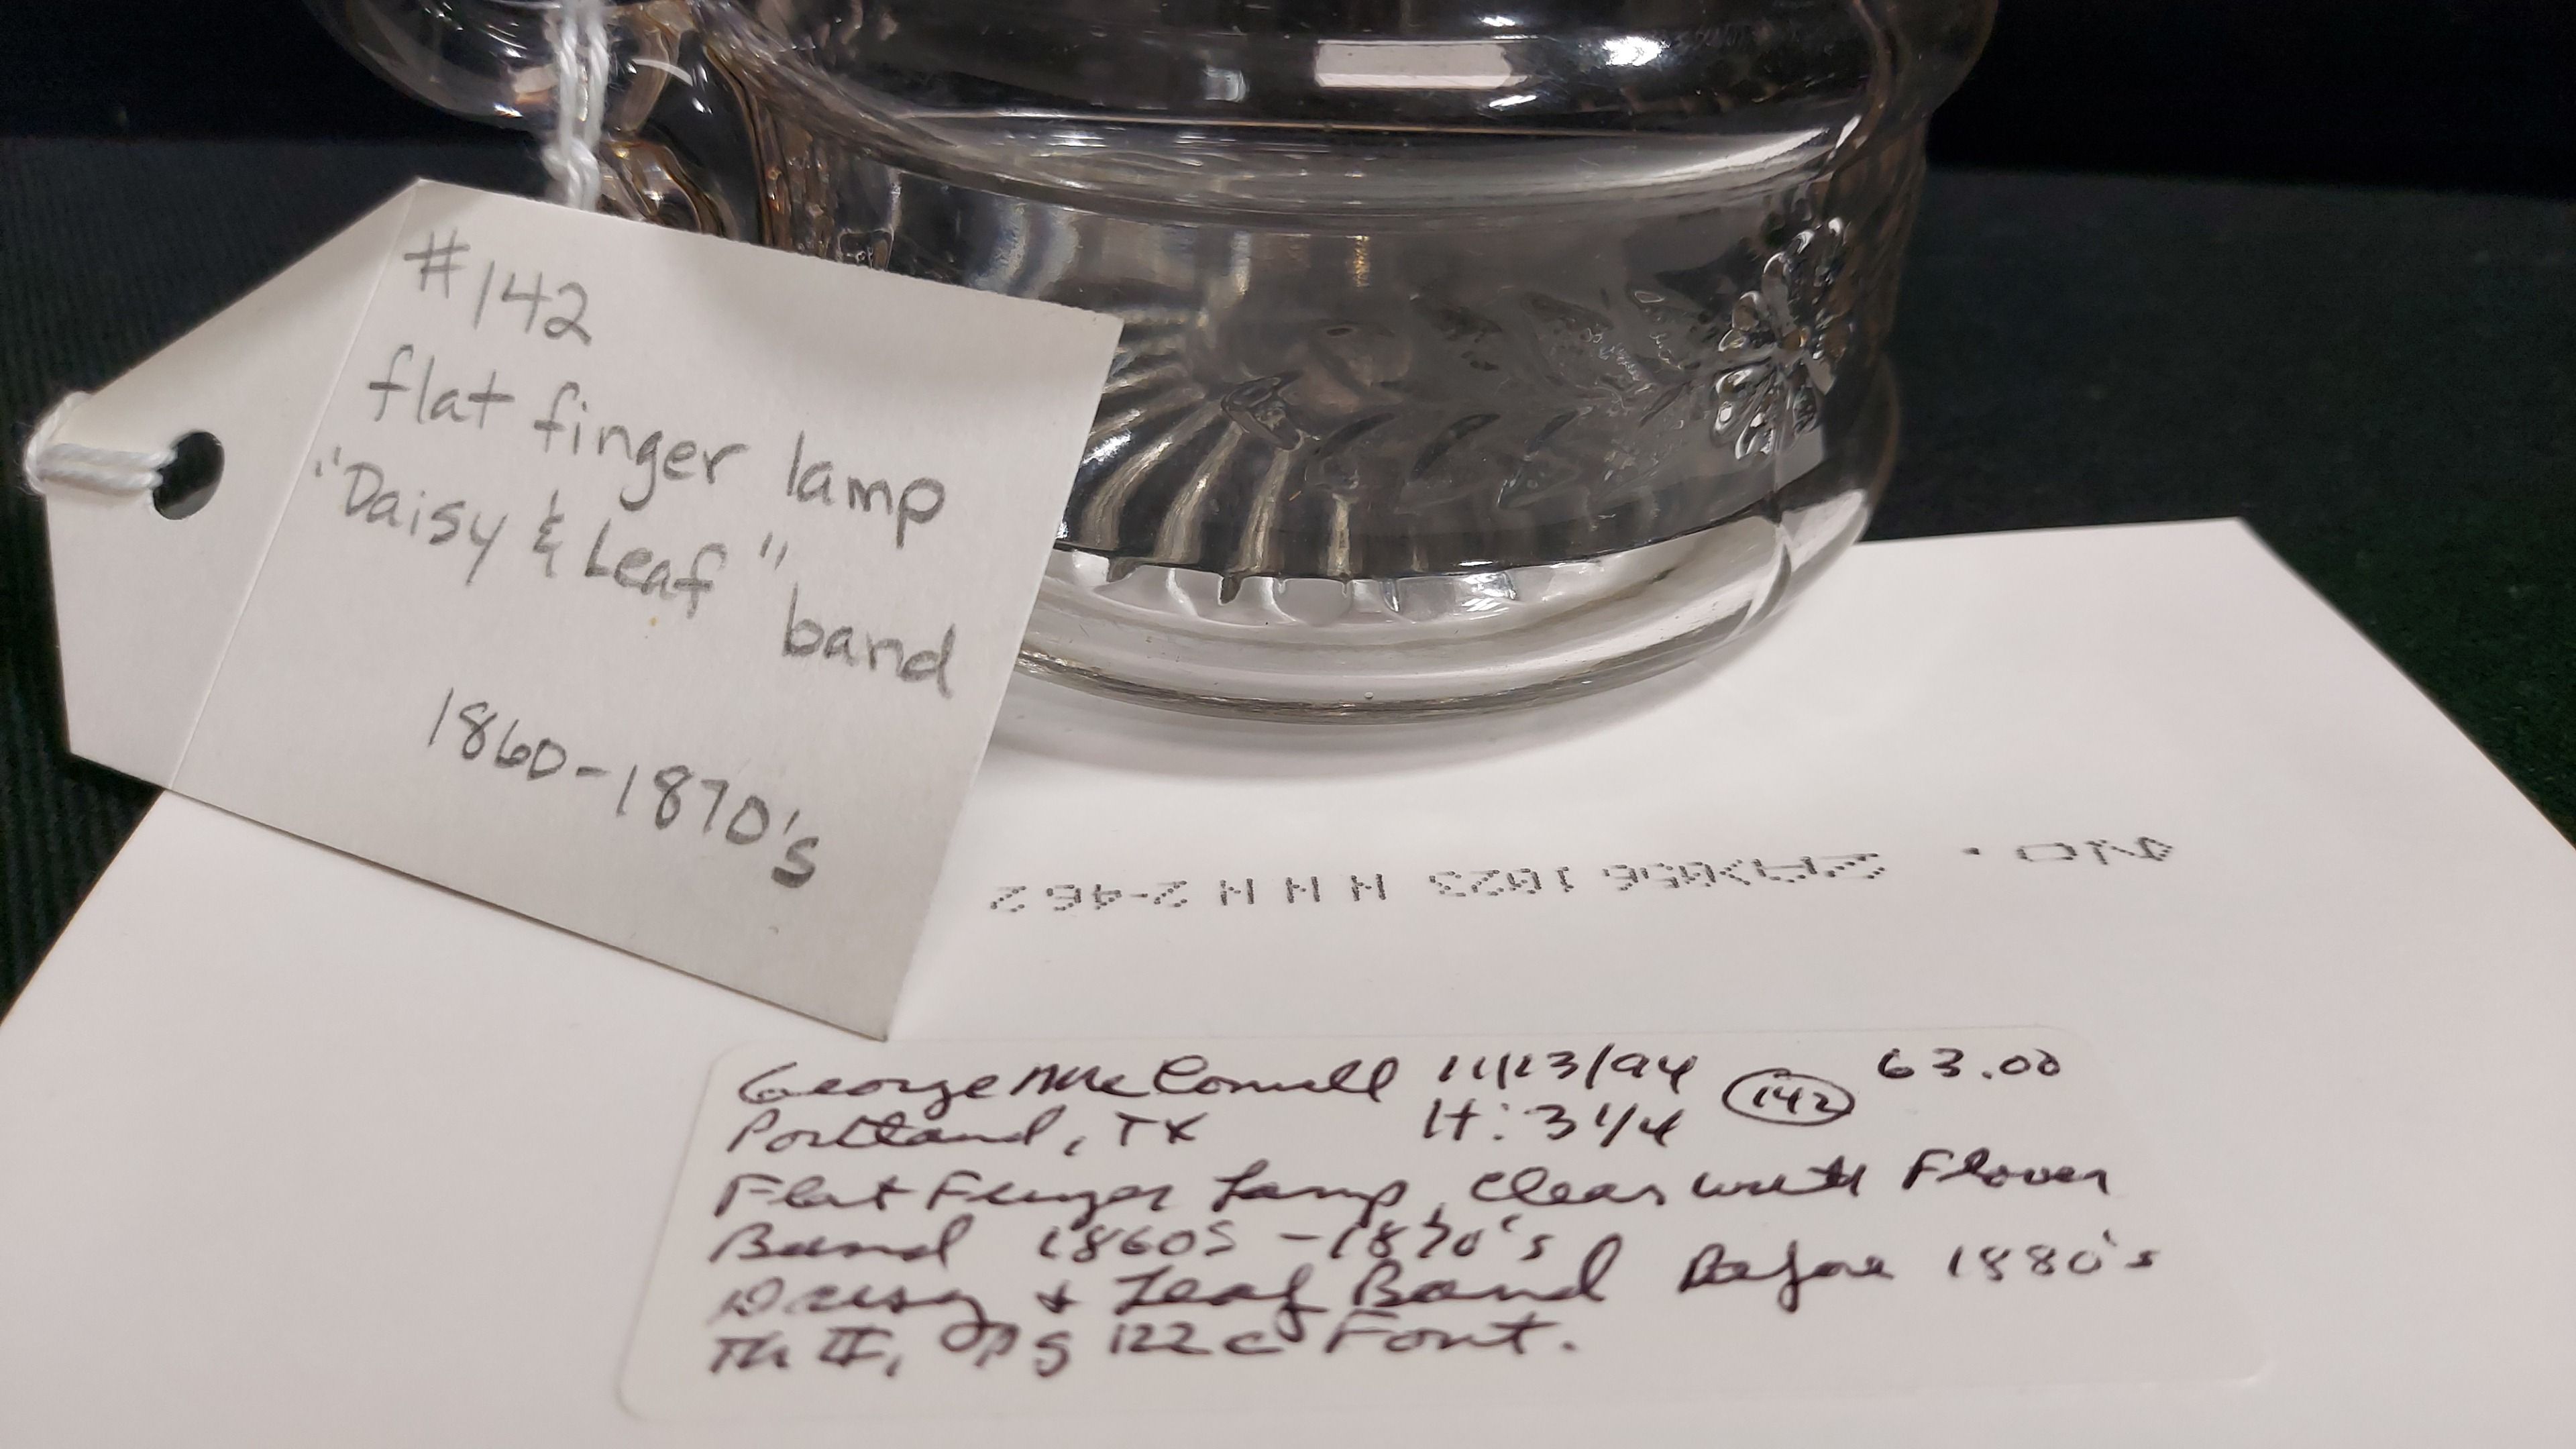 #142
flat finger lamp
"Daisy & Leaf"
band
1860-1870's
George McConnell 11/13/94 142 63.00
Portland, TX H: 3 1/4
Flat Finger Lamp, Clear with Flower
Band 1860s - 1870's
Daisy & Leaf Band Before 1880's
Th II, Pg 122 c Font.